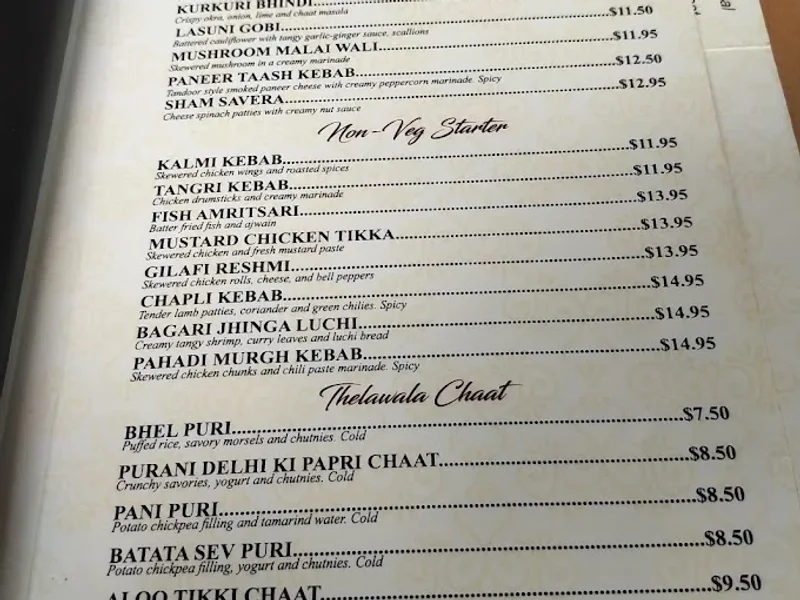 KURKURI BHINDI
Crispy okra, onion, lime and chaat masala
LASUNI GOBI........$11.50
Battered cauliflower with tangy garlic-ginger sauce, scallions
MUSHROOM MALAI WALI........$11.95
Skewered mushroom in a creamy marinade
PANEER TAASH KEBAB........$12.50
Tandoor style smoked paneer cheese with creamy peppercorn marinade. Spicy
SHAM SAVERA........$12.95
Cheese spinach patties with creamy nut sauce
Non-Veg Starter
KALMI KEBAB........$11.95
Skewered chicken wings and roasted spices
TANGRI KEBAB........$11.95
Chicken drumsticks and creamy marinade
FISH AMRITSARI........$13.95
Batter fried fish and ajwain
MUSTARD CHICKEN TIKKA........$13.95
Skewered chicken and fresh mustard paste
GILAFI RESHMI........$13.95
Skewered chicken rolls, cheese, and bell peppers
CHAPLI KEBAB........$14.95
Tender lamb patties, coriander and green chilies. Spicy
BAGARI JHINGA LUCHI........$14.95
Creamy tangy shrimp, curry leaves and luchi bread
PAHADI MURGH KEBAB........$14.95
Skewered chicken chunks and chili paste marinade. Spicy
Thelawala Chaat
BHEL PURI........$7.50
Puffed rice, savory morsels and chutnies. Cold
PURANI DELHI KI PAPRI CHAAT........$8.50
Crunchy savories, yogurt and chutnies. Cold
PANI PURI........$8.50
Potato chickpea filling and tamarind water. Cold
BATATA SEV PURI........$8.50
Potato chickpea filling, yogurt and chutnies. Cold
ALOO TIKKI CHAAT........$9.50